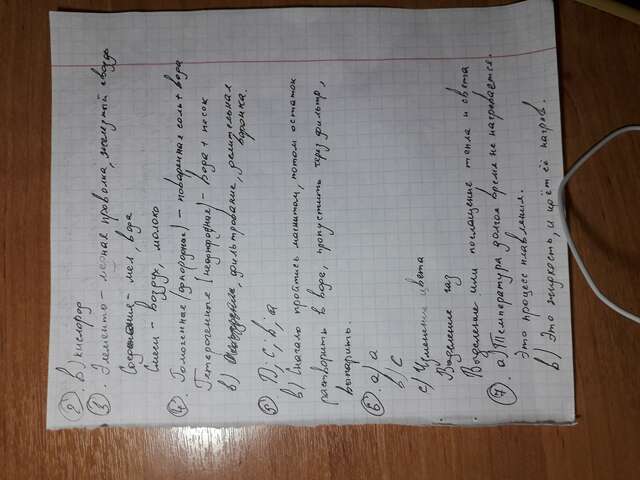 2. В) кислород
3. Элементы - медная проволка, железный гвоздь
Соединения - мел, вода
Смеси - воздух, молоко
4. Гомогенные (однородные) - поваренная соль + вода
Гетерогенные (неоднородные) - вода + песок
в) фильтрование, делительная
воронка.
5 D; c; b; a
в) Сначало пройтись магнитом, потом остаток
растворить в воде, пропустить через фильтр,
выпарить.
6 а) а
в) с
с) Изменение цвета
Выделение газ
Выделение или поглащение тепла и света
7. а) Температура долгое время не нагревается.
Это процесс плавления.
в) Это жидкость, и идёт её нагрев.